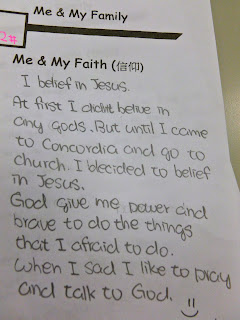 Me & My Family
2#
Me & My Faith (信仰)
I belief in Jesus.
At first I didnt belive in
any gods. But until I came
to Concordia and go to
church. I blecided to belief
in Jesus.
God give me power and
brave to do the things
that I afraid to do.
When I sad I like to pray
and talk to God.